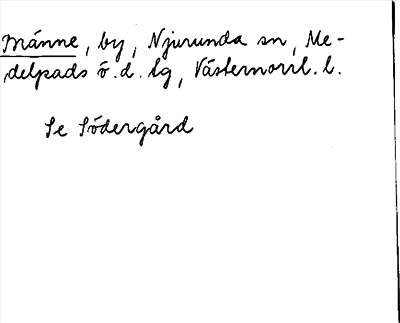 Månne, by, Njurunda sn, Me-
delpads ö.d. tg, Västernorrl. l.
Se Södergård